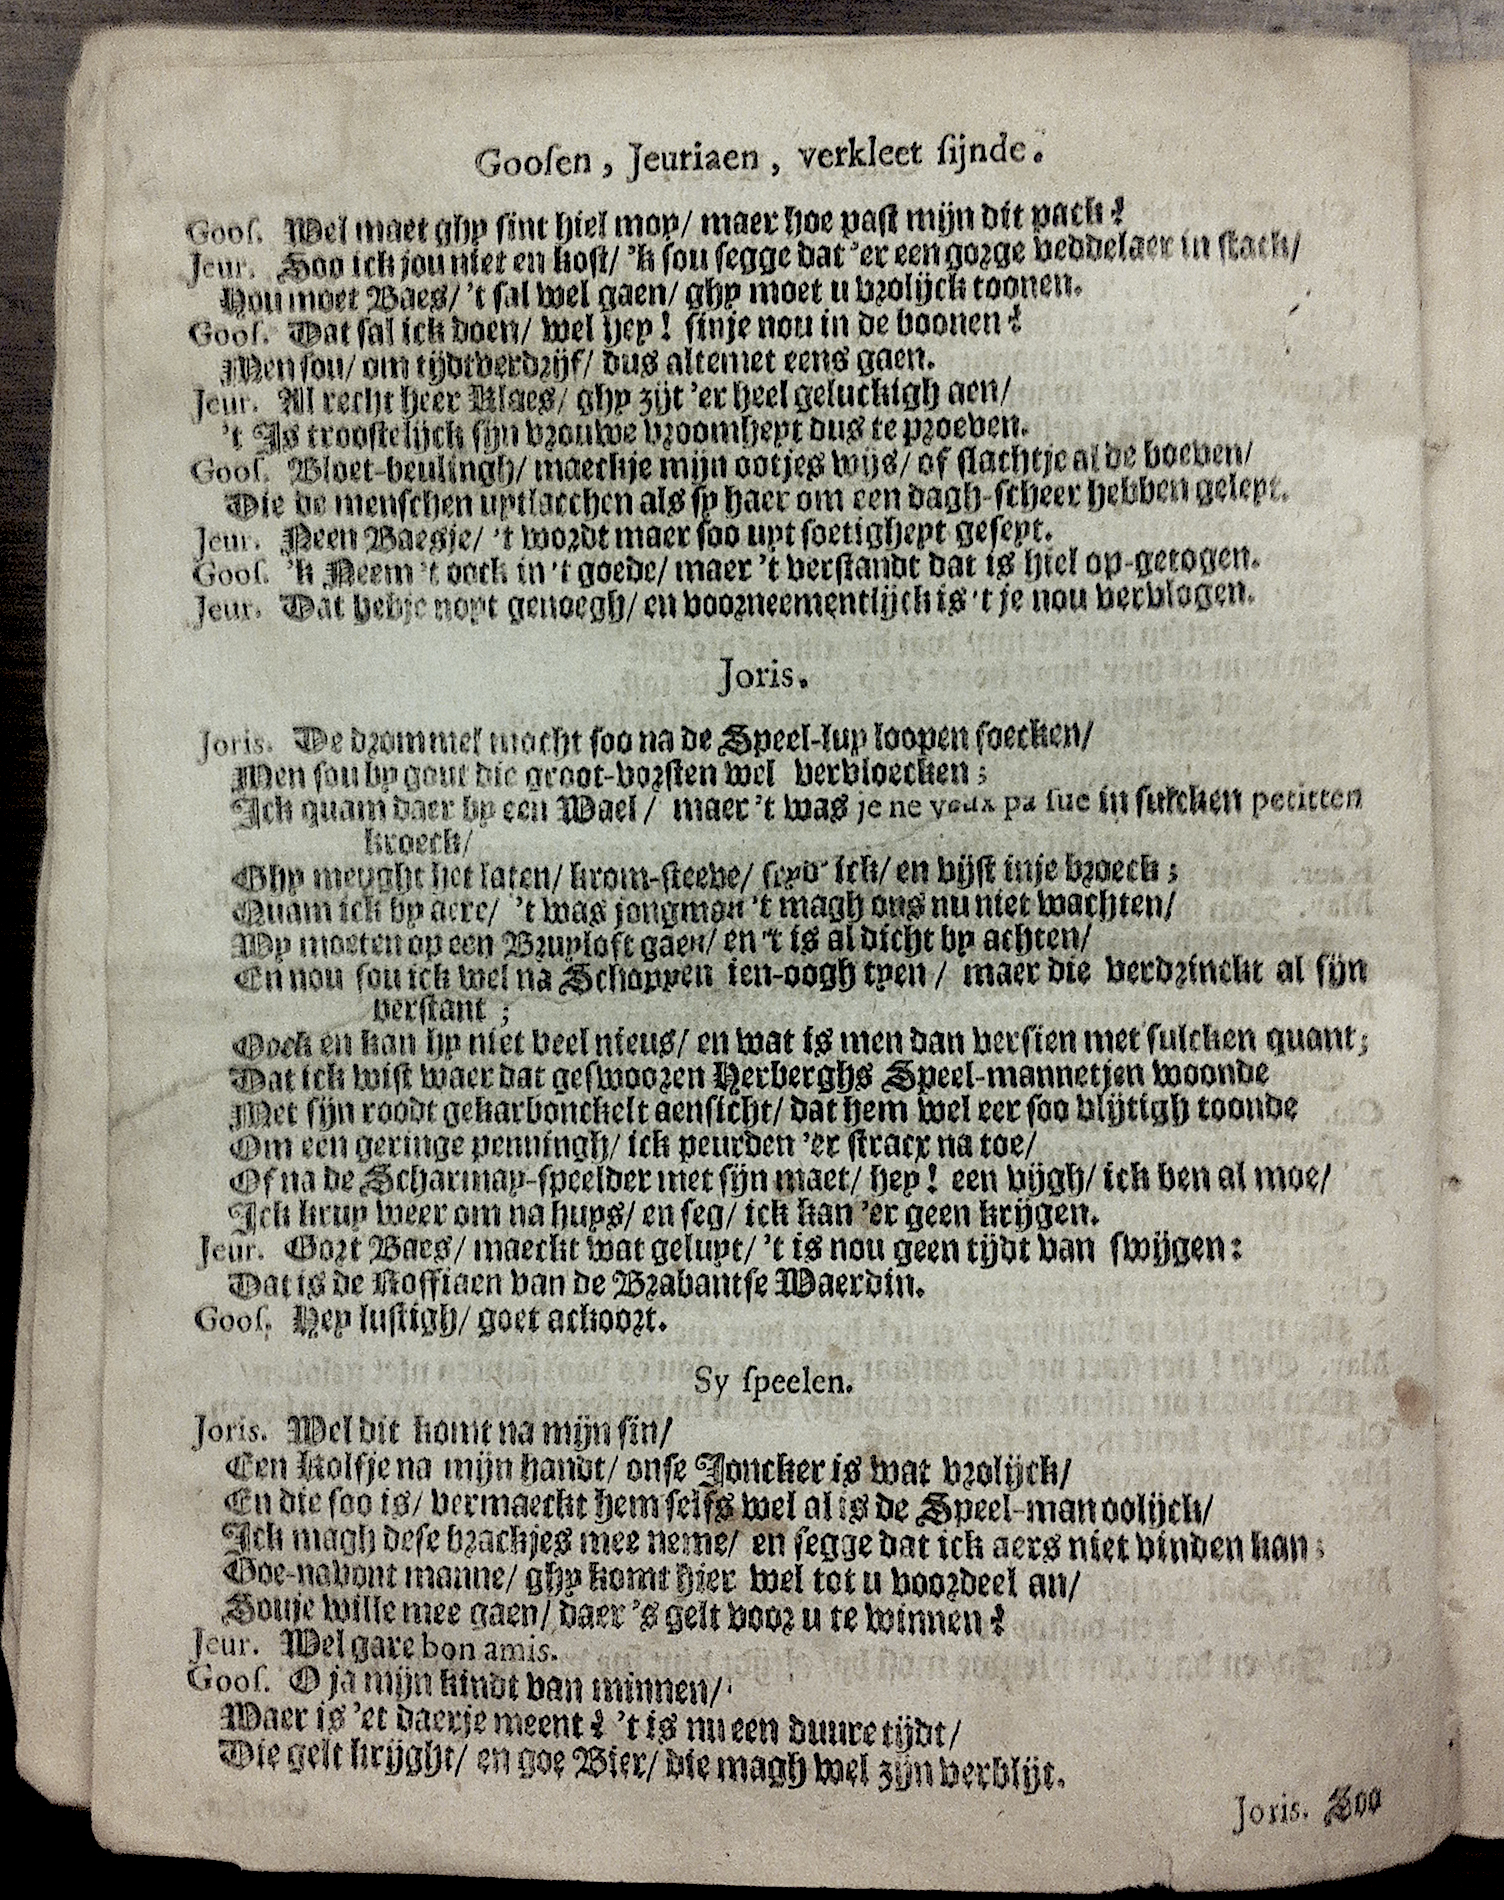 Goosen, Jeuriaen, verkleet sijnde.
Goos. Wel maet ghy sint hiel moy/ maer hoe past mijn dit pack?
Jeur. Soo ick jou niet en kost/ 'k sou segge dat 'er een gorge veddelaer in stack/
Hou moet Baes/ 't sal wel gaen/ ghy moet u vrolijck toonen.
Goos. Dat sal ick doen/ wel hey! sinje nou in de boonen?
Men sou/ om tijdtverdrijf/ dus altemet eens gaen.
Jeur. Al recht heer Klaes/ ghy zijt 'er heel geluckigh aen/
't Is troostelijck sijn vrouwe vroomheyt dus te proeven.
Goos. Bloet-beulingh/ maeckje mijn ootjes wijs/ of slachtje al de boeven/
Die de menschen uytlacchen als sy haer om een dagh-scheer hebben geleyt.
Jeur. Neen Baesje/ 't wordt maer soo uyt soetigheyt geseyt.
Goos. 'k Neem 't oock in 't goede/ maer 't verstandt dat is hiel op-getogen.
Jeur. Dat hebje noyt genoegh/ en voorneementlijck is 't je nou vervlogen.
Joris.
Joris. De drommel mocht soo na de Speel-luy loopen soecken/
Men sou by gout die groot-vorsten wel vervloecken;
Ick quam daer by een Wael/ maer 't was je ne veux pa sue in sulcken petitten
kroeck/
Ghy meught het laten/ krom-steeve/ seyd' ick/ en vijst inje broeck;
Quam ick by aere/ 't was jongman 't magh ons nu niet wachten/
Wy moeten op een Bruyloft gaen/ en 't is al dicht by achten/
En nou sou ick wel na Schoppen ien-oogh tyen/ maer die verdrinckt al sijn
verstant;
Oock en kan hy niet veel nieus/ en wat is men dan versien met sulcken quant;
Dat ick wist waer dat geswooren Herberghs Speel-mannetjen woonde
Met sijn roodt gekarbonckelt aensicht/ dat hem wel eer soo vlijtigh toonde
Om een geringe penningh/ ick peurden 'er stracx na toe/
Of na de Scharmay-speelder met sijn maet/ hey! een vijgh/ ick ben al moe/
Ick kruy weer om na huys/ en seg/ ick kan 'er geen krijgen.
Jeur. Gort Baes/ maeckt wat geluyt/ 't is nou geen tijdt van swijgen:
Dat is de Koffiaen van de Brabantse Waerdin.
Goos. Hey lustigh/ goet ackoort.
Sy speelen.
Joris. Wel dit komt na mijn sin/
Een Kolfje na mijn handt/ onse Joncker is wat vrolijck/
En die soo is/ vermaeckt hem selfs wel al is de Speel-man oolijck/
Ick magh dese brackjes mee neme/ en segge dat ick aers niet vinden kan;
Goe-navont manne/ ghy komt hier wel tot u voordeel an/
Souje wille mee gaen/ daer 's gelt voor u te winnen?
Jeur. Wel gare bon amis.
Goos. O ja mijn kindt van minnen/
Waer is 'et daerje meent? 't is nu een duure tijdt/
Die gelt krijght/ en goe Bier/ die magh wel zijn verblijt.
Joris. Soo